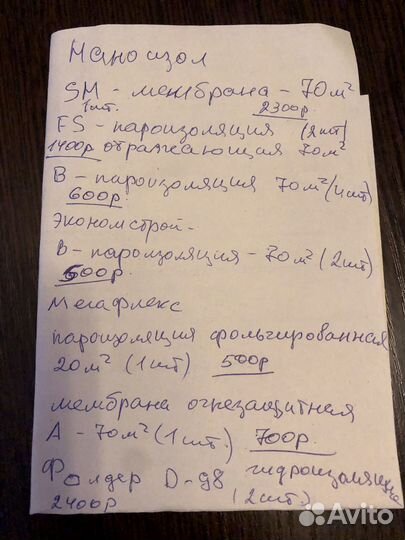 Маноизол
SM - мембрана - 70 м²
1 шт.
2300р.
FS - пароизоляция (2 шт)
1400р отражающая 70 м²
В - пароизоляция 70 м² (4 шт)
600р.
Экономстрой -
В - пароизоляция - 70 м² (2 шт)
600р.
Мегафлекс
пароизоляция фольгированная
20 м² (1 шт) 500р
мембрана огнезащитная
А - 70 м² (1 шт.) 700р.
Фолдер D-98 гидроизоляция
2400р (2 шт)
Avito